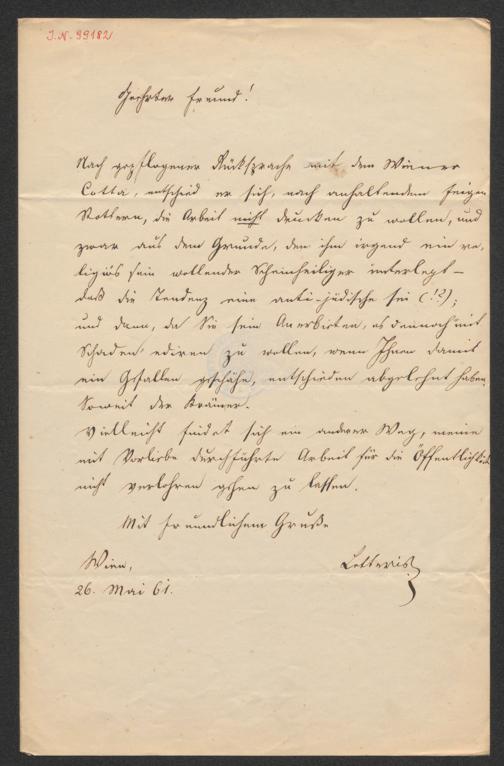 J.N. 99182
Geehrter Freund!
Nach gepflogener Rücksprache mit dem Wiener
Cotta, entschied er sich, nach anhaltendem feigen
Stottern, die Arbeit nicht drucken zu wollen, und
zwar aus dem Grunde, den ihm irgend ein re-
ligiös sein wollender Scheinheiliger unterlegt –
daß die Tendenz eine anti-jüdische sei (!?);
und dann, da Sie sein Anerbieten, es dennoch mit
Schaden ediren zu wollen, wenn Ihnen damit
ein Gefallen geschähe, entschieden abgelehnt haben.
Soweit der Krämer.
Vielleicht findet sich ein anderer Weg, meine
mit Vorliebe durchführte Arbeit für die Öffentlichkeit
nicht verlohren gehen zu lassen.
Mit freundlichem Gruße
Wien, Letteris
26. Mai 61.